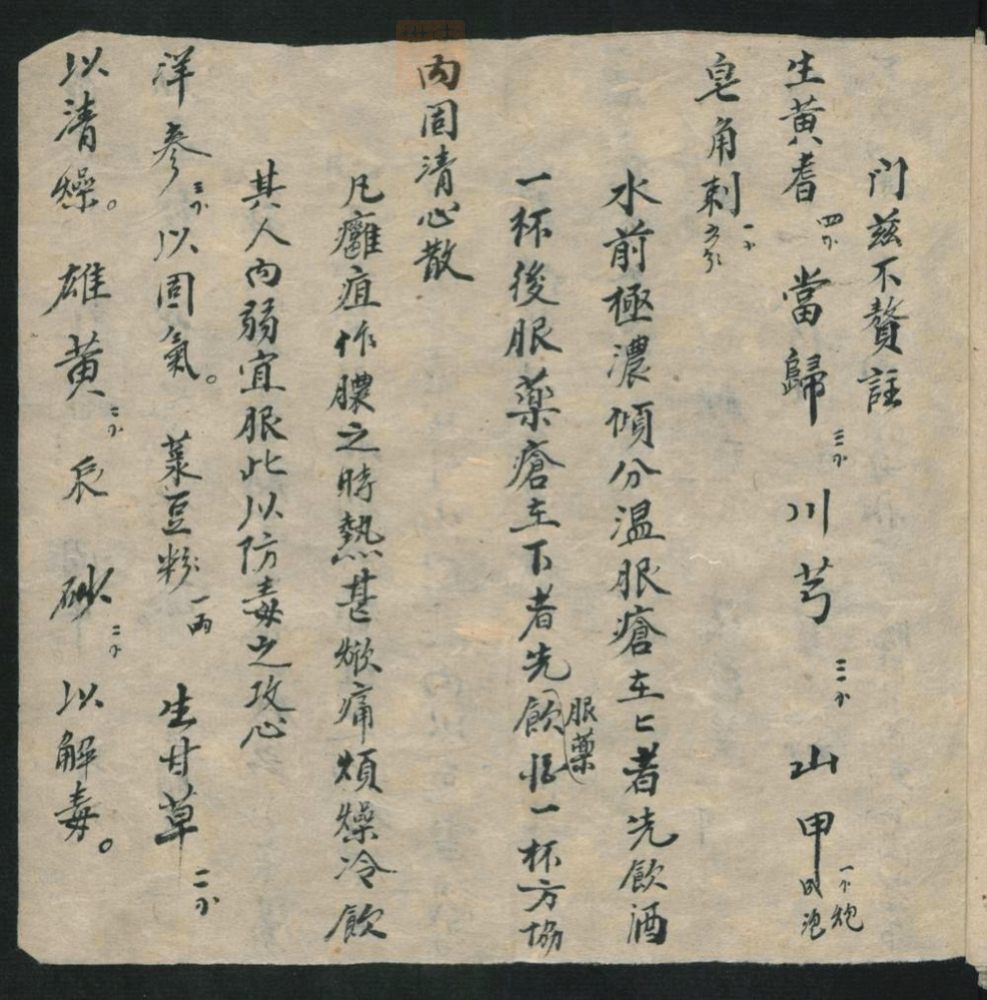 門兹不贅註
生黃耆 四分 當歸 三分 川芎 三分 山甲 一个 炮
皂角刺 一个
水前極濃傾分溫服瘡在匕者先飲酒
一杯後服藥瘡在下者先飲服藥 一杯方協
內固清心散
凡癰疽作膿之時熱甚焮痛煩燥冷飲
其人內弱宜服此以防毒之攻心
洋參 三分 以固氣。菉豆粉 一兩 生甘草 二分
以清燥。雄黃 二分 辰砂 二分 以解毒。